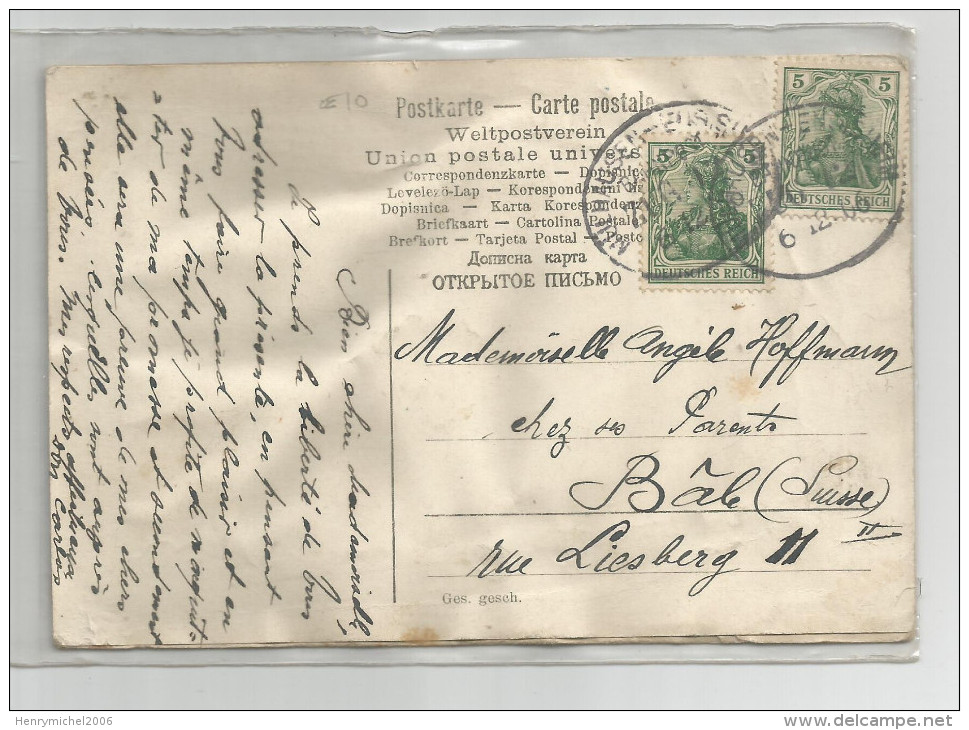 Œ10
Postkarte — Carte postale
Weltpostverein
Union postale univers
Correspondenzkarte — Dopisnice
Levelező-Lap — Korespondenční
Dopisnica — Karta Korespondenc
Briefkaart — Cartolina Postale
Brefkort — Tarjeta Postal — Posto
Дописна карта
ОТКРЫТОЕ ПИСЬМО
5 5
DEUTSCHES REICH
5 5
DEUTSCHES REICH
6 12 06
Mademoiselle Angèle Hoffmann
chez ses Parents
Bâle (Suisse)
rue Liesberg 11 II
Ges. gesch.
Bien chère Mademoiselle
Je prends la liberté de vous
adresser la présente, en pensant
vous faire grand plaisir et en
même temps je profite de
de ma promesse et
elle sera une preuve de mes chers
pensées, lesquelles sont auprès
de vous. Mes respects affectueux
Don Carlos
Henrymichel2006
www.delcampe.net